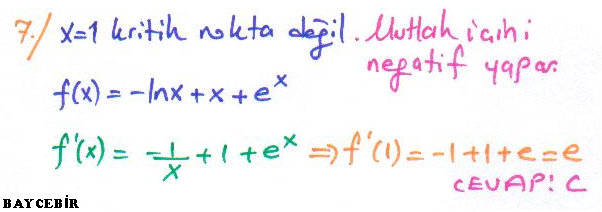 7./ x=1 kritik nokta değil. Mutlak içini
negatif yapar.
f(x) = -lnx + x + e^x
f'(x) = -1/x + 1 + e^x ⇒ f'(1) = -1+1+e = e
CEVAP: C
BAYCEBİR